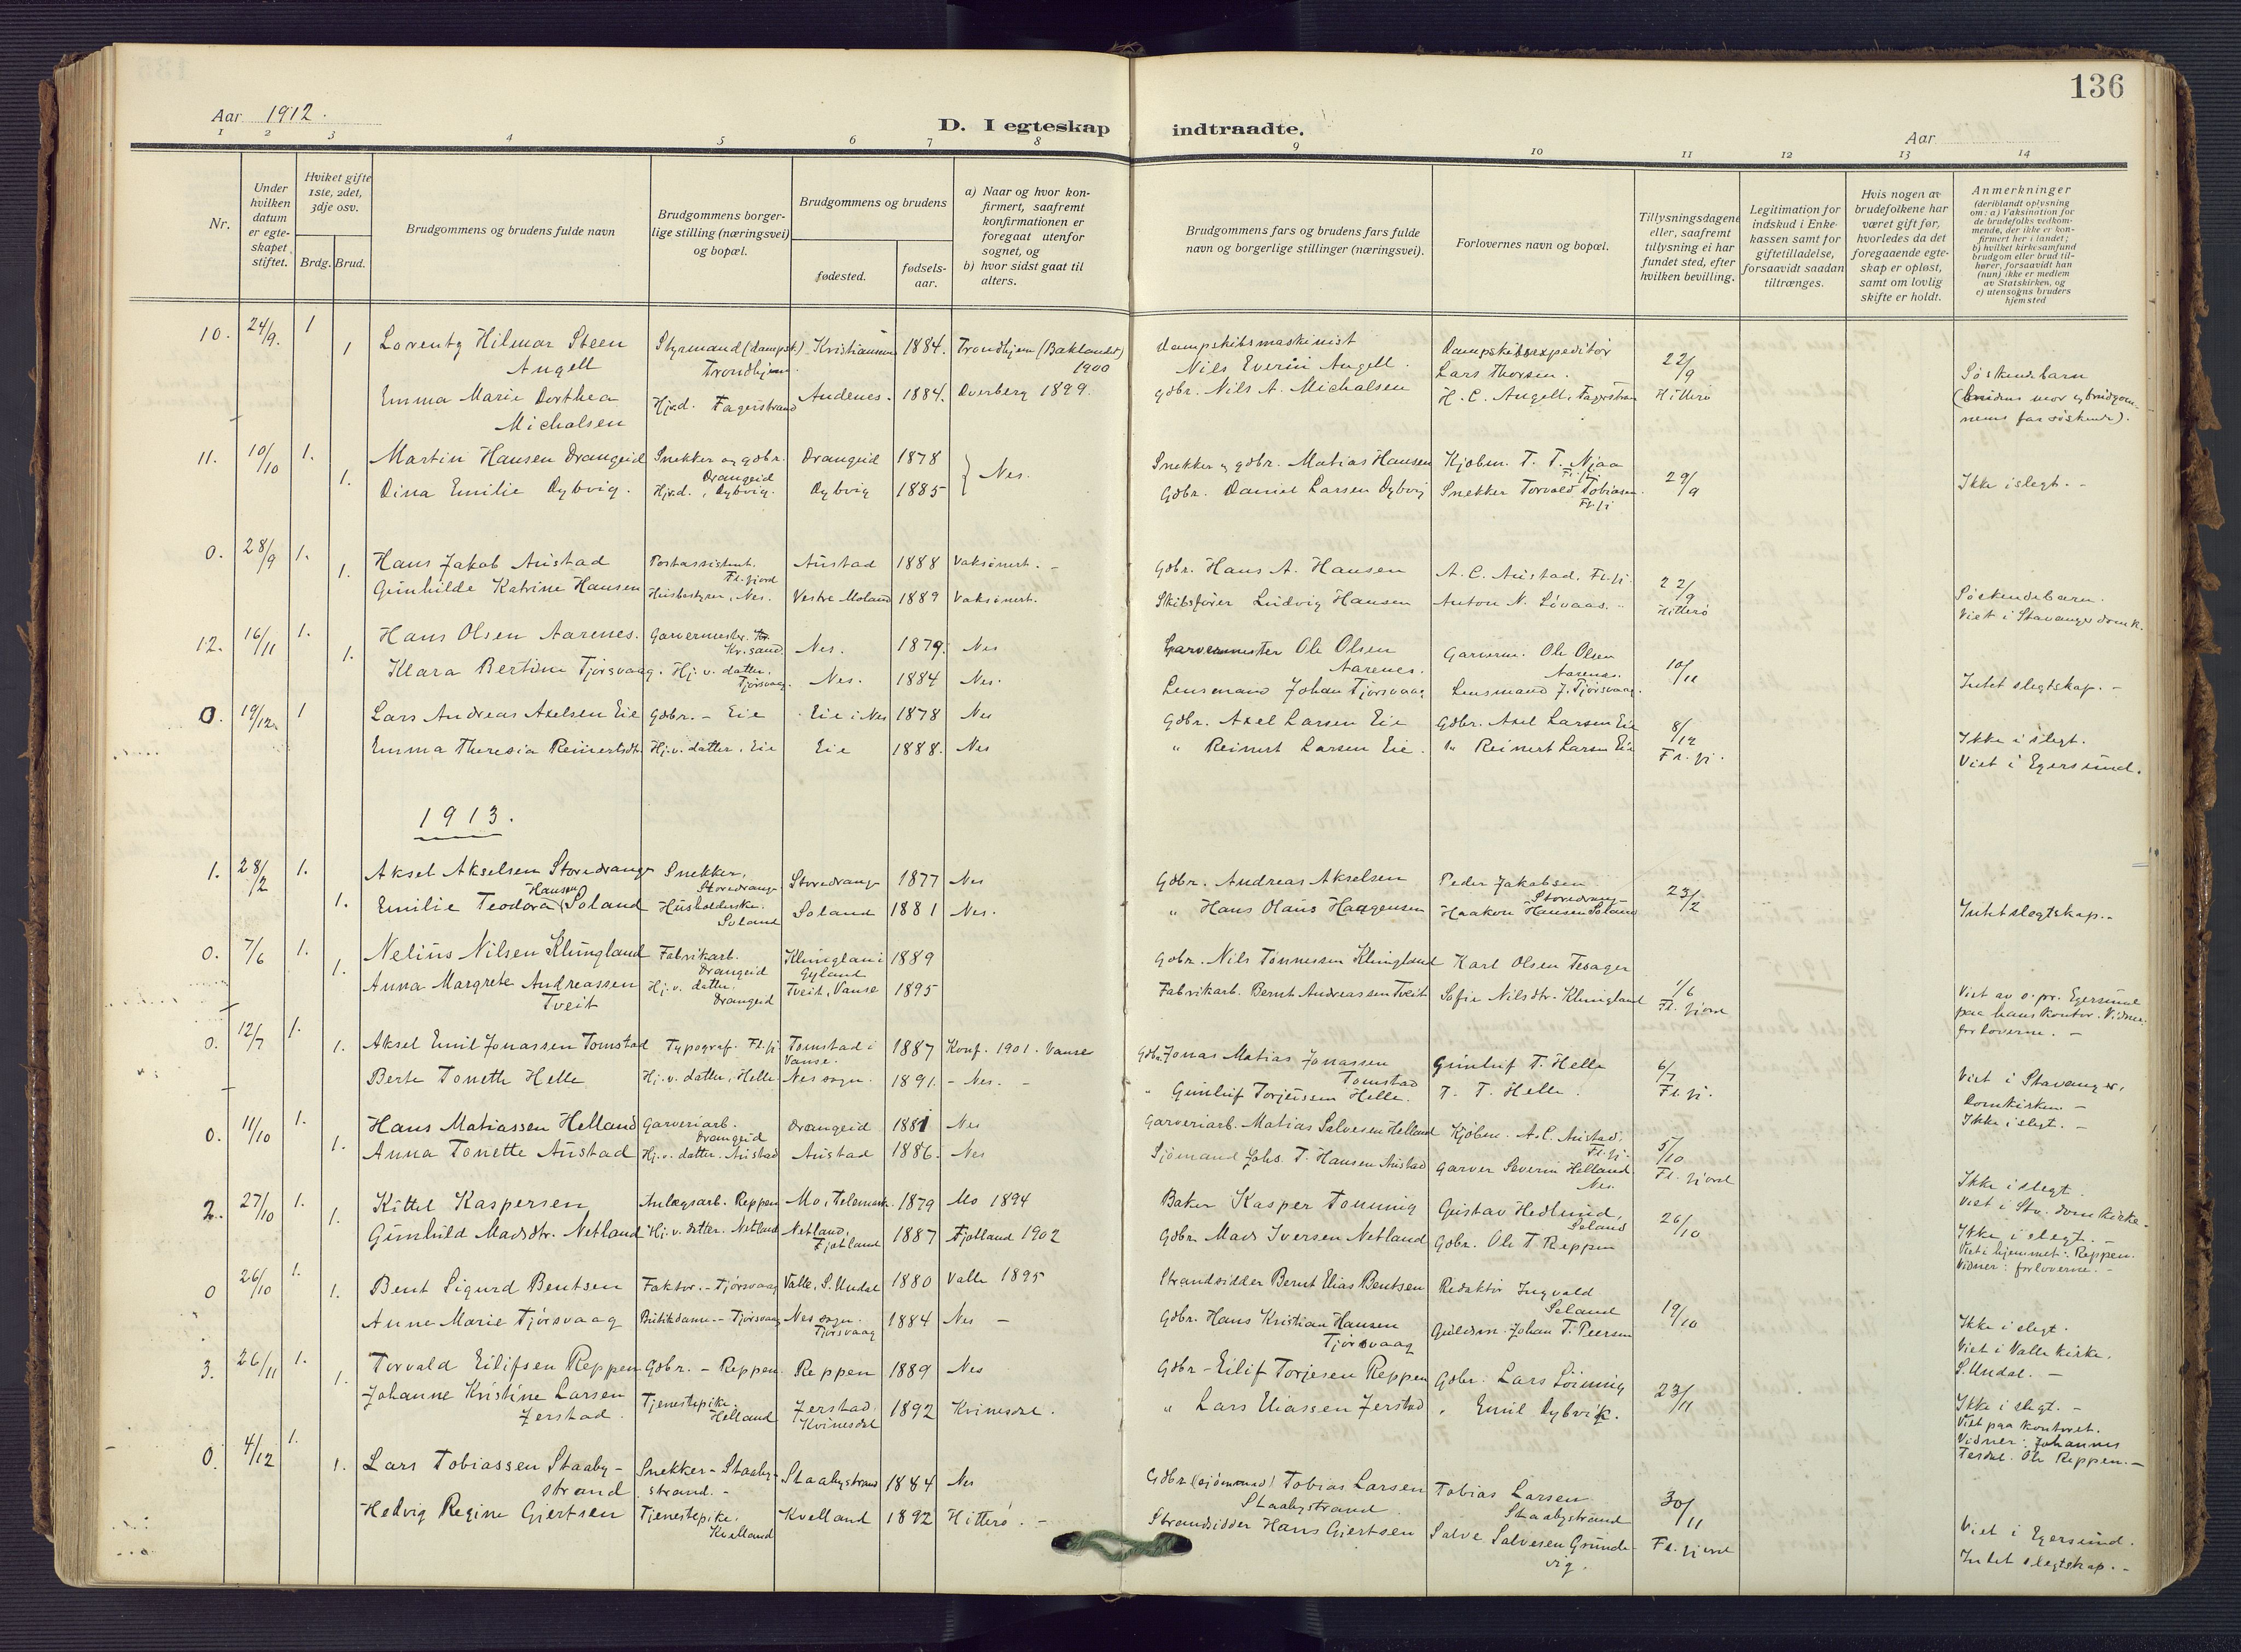 136
Aar 1912.
D. I egteskap indtraadte.
Aar
1 2 3 4 5 6 7 8 9 10 11 12 13 14
Nr.
Under hvilken datum er egteskapet stiftet.
Hviket gifte 1ste, 2det, 3dje osv.
Brdg. Brud.
Brudgommens og brudens fulde navn
Brudgommens borgerlige stilling (næringsvei) og bopæl.
Brudgommens og brudens
fødested.
fødselsaar.
a) Naar og hvor konfirmert, saafremt konfirmationen er foregaat utenfor sognet, og
b) hvor sidst gaat til alters.
Brudgommens fars og brudens fars fulde navn og borgerlige stillinger (næringsvei).
Forlovernes navn og bopæl.
Tillysningsdagene eller, saafremt tillysning ei har fundet sted, efter hvilken bevilling.
Legitimation for indskud i Enkekassen samt for giftetilladelse, forsaavidt saadan tiltrænges.
Hvis nogen av brudefolkene har været gift før, hvorledes da det foregaaende egteskap er opløst, samt om lovlig skifte er holdt.
Anmerkninger (deriblandt oplysning om: a) Vaksination for de brudefolks vedkommende, der ikke er konfirmert her i landet; b) hvilket kirkesamfund brudgom eller brud tilhører, forsaavidt han (hun) ikke er medlem av Statskirken, og c) utensogns bruders hjemsted
10. 24/9. 1 Lorentz Hilmar Steen Angell Styrmand (dampsk.) Trondhjem. 1884. Trondhjem (Baklandet) 1900 Dampskibsmaskinist Nils Everin Angell. Dampskibsexpeditør Lars Thorsen. 22/9 Hitterø Søskendebarn
1 Emma Marie Dorthea Michalsen Hj.d. Fagerstrand Andenes. 1884. Overberg 1899. Gdbr. Nils A. Michalsen H. C. Angell, Fagerstran (brudens mor og brudgommens far søskende).
11. 10/10 1. Martin Hansen Drangeid Snekker og gdbr. Drangeid Drangeid 1878 } Nes. Snekker og gdbr. Matias Hansen Kjøbm. T. T. Njaa Fl.fj. 29/9 Ikke i slegt. -
1. Dina Emilie Dybvig. Hj.d., Dybvig. Dybvig 1885 Gdbr. Daniel Larsen Dybvig Snekker Torvald Tobiasen Fl.fj
0. 28/9 1. Hans Jakob Austad Postassistent. Fl.fjord Austad 1888 Vaksinert. - Gdbr. Hans A. Hansen A. C. Austad, Fl.fj. 22/9 Hitterø Søskendebarn.
1. Gunhilde Katrine Hansen Husbestyrer, Nes. Vestre Moland 1889 Vaksinert. Skibsfører Ludvig Hansen Anton N. Løvaas. " Viet i Stavanger domk.
12. 16/11 1. Hans Olsen Aarenes. Garvermester. Kr.sand. Nes. 1879. Nes Garvermester Ole Olsen Aarenes. Garverm. Ole Olsen Aarenes. 10/11
1. Klara Bertine Tjørsvaag. Hj. v. datter. Tjørsvaag. Nes. 1884 Nes. Lensmand Johan Tjørsvaag Lensmand J. Tjørsvaag. Intet slegtskap. -
0. 19/12. 1 Lars Andreas Axelsen Eie Gdbr. - Eie Eie i Nes 1878 Nes Gdbr. Axel Larsen Eie Gdbr. Axel Larsen Eie 8/12 Fl.fj. Ikke i slegt.
Emma Theresia Reinertsdtr. Hj.v. datter, Eie Eie 1888. Nes " Reinert Larsen Eie. " Reinert Larsen Eie Viet i Egersund.
1913.
1. 28/2 1. Aksel Akselsen Storedrange Snekker, Storedrange Storedrange 1877 Nes Gdbr. Andreas Akselsen Peder Jakobsen Storedrange 23/2
1. Emilie Teodora Hansen Soland Husholderske. Soland Soland 1881 Nes. " Hans Olaus Haagensen Haakon Hansen Soland Intet slegtskap. -
0. 7/6 1. Nelius Nilsen Klungland Fabrikarb. Drangeid Klungland Gyland 1889 Gdbr. Nils Tønnessen Klungland Karl Olsen Tesager 1/6 Fl.fjord
1. Anna Margrete Andreassen Tveit Hj. v. datter. Drangeid Tveit, Vanse 1895 Fabrikarb. Bernt Andreassen Tveit Sofie Nilsdtr. Klungland Viet av s.pr. Egersund paa hans kontor. Vidner: forloverne. -
0. 12/7 1. Aksel Emil Jonassen Tomstad Typograf. Fl.fj. Tomstad i Vanse. 1887 Konf. 1901. Vanse Gdbr. Jonas Matias Jonassen Tomstad Gunluf T. Helle 6/7 Fl.fj. Viet i Stavanger, Domkirken -
1. Berte Tonette Helle Hj. v. datter, Helle Nes sogn. 1891. - Nes. - " Gunluf Torjeussen Helle. T. T. Helle. Ikke i slegt. -
0. 11/10 1. Hans Matiassen Helland Garveriarb. Drangeid Drangeid 1881 Nes Garveriarb. Matias Salvesen Helland Kjøbm. A. C. Austad. Fl.fj. 5/10 Fl.fjord Ikke i slegt.
1. Anna Tonette Austad Hj.v. datter. Austad Austad 1886. Nes Sjømand Johs. T. Hansen Austad Garver Severin Helland Nes. Viet i Stv. domkirke.
2. 27/10 1. Kittel Kaspersen Anlægsarb. Reppen Mo i Telemark. 1879 Mo 1894 Baker Kasper Tomming Gustav Hedlund, Soland 26/10 Ikke i slegt. -
1. Gunhild Madsdtr. Netland Hj. v. datter. Netland Netland, Fjotland 1887 Fjotland 1902 Gdbr. Mads Iversen Netland Gdbr. Ole T Reppen Viet i hjemmet: Reppen. Vidner: forloverne. -
0 26/10 1. Bent Sigurd Bentsen Faktor. - Tjørsvaag Valle, S. Undal 1880 Valle 1895 Strandsidder Bernt Elias Bentsen Redaktør Ingvald Seland 19/10 Ikke i slegt.
1. Anne Marie Tjørsvaag Butikdame. - Tjørsvaag Nes sogn. Tjørsvaag 1884 Nes - Gdbr. Hans Kristian Hansen Tjørsvaag Guldsm. Johan T. Peersen Viet i Valle kirke. S. Undal. -
3. 26/11 1. Torvald Eilifsen Reppen Gdbr. - Reppen. Reppen 1889 Nes Gdbr - Eilif Torjesen Reppen Gdbr. Lars Løining 23/11 Ikke i slegt. -
1. Johanne Kristine Larsen Jerstad. Tjenestepike. Helland Jerstad. Kvinesdal 1892 Kvinesdal. " Lars Eliassen Jerstad " Emil Dybvik. Viet paa kontoret. Vidner: Johannes Tesdal. Ole Reppen. -
0. 4/12 1. Lars Tobiassen Staabystrand Snekker - Staabystrand. - Staabystrand 1884 Nes Gdbr. (sjømand) Tobias Larsen Staabystrand Tobias Larsen Staabystrand 30/11 Fl.fjord Viet i Egersund.
1. Hedvig Regine Gjertsen Tjenestepike. Kvelland Kvelland 1892 Hitterø. - Strandsidder Hans Gjertsen Salve Salvesen Grundevig. Intet slegtskap. -